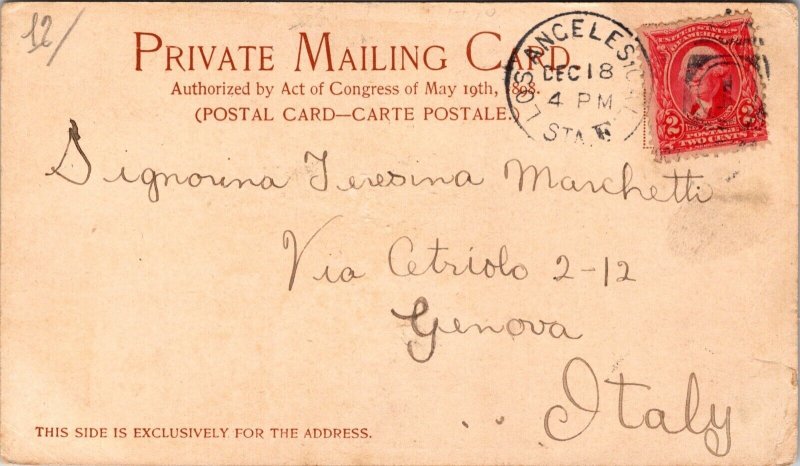 12/
PRIVATE MAILING CARD
Authorized by Act of Congress of May 19th, 1898.
(POSTAL CARD—CARTE POSTALE.
LOS ANGELES, CAL.
DEC 18
4 PM
STA.
UNITED STATES OF AMERICA
2 2
POSTAGE
TWO CENTS
Signorina Teresina Marchetti
Via Cetriolo 2-12
Genova
Italy
THIS SIDE IS EXCLUSIVELY FOR THE ADDRESS.